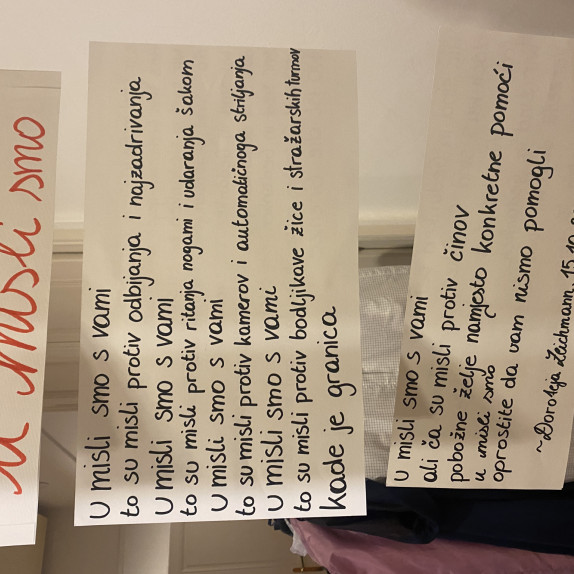 u misli smo
U misli smo s vami
to su misli protiv odbijanja i najzadrivanja
U misli smo s vami
to su misli protiv ritanja nogami i udaranja šakom
U misli smo s vami
to su misli protiv kamerov i automatičnoga striljanja
U misli smo s vami
to su misli protiv bodljikave žice i stražarskih turmov
kade je granica
U misli smo s vami
ali ča su misli protiv činov
pobožne želje namjesto konkretne pomoći
u misli smo
oprostite da vam nismo pomogli
~Doroteja Zeichmann, 15.10.